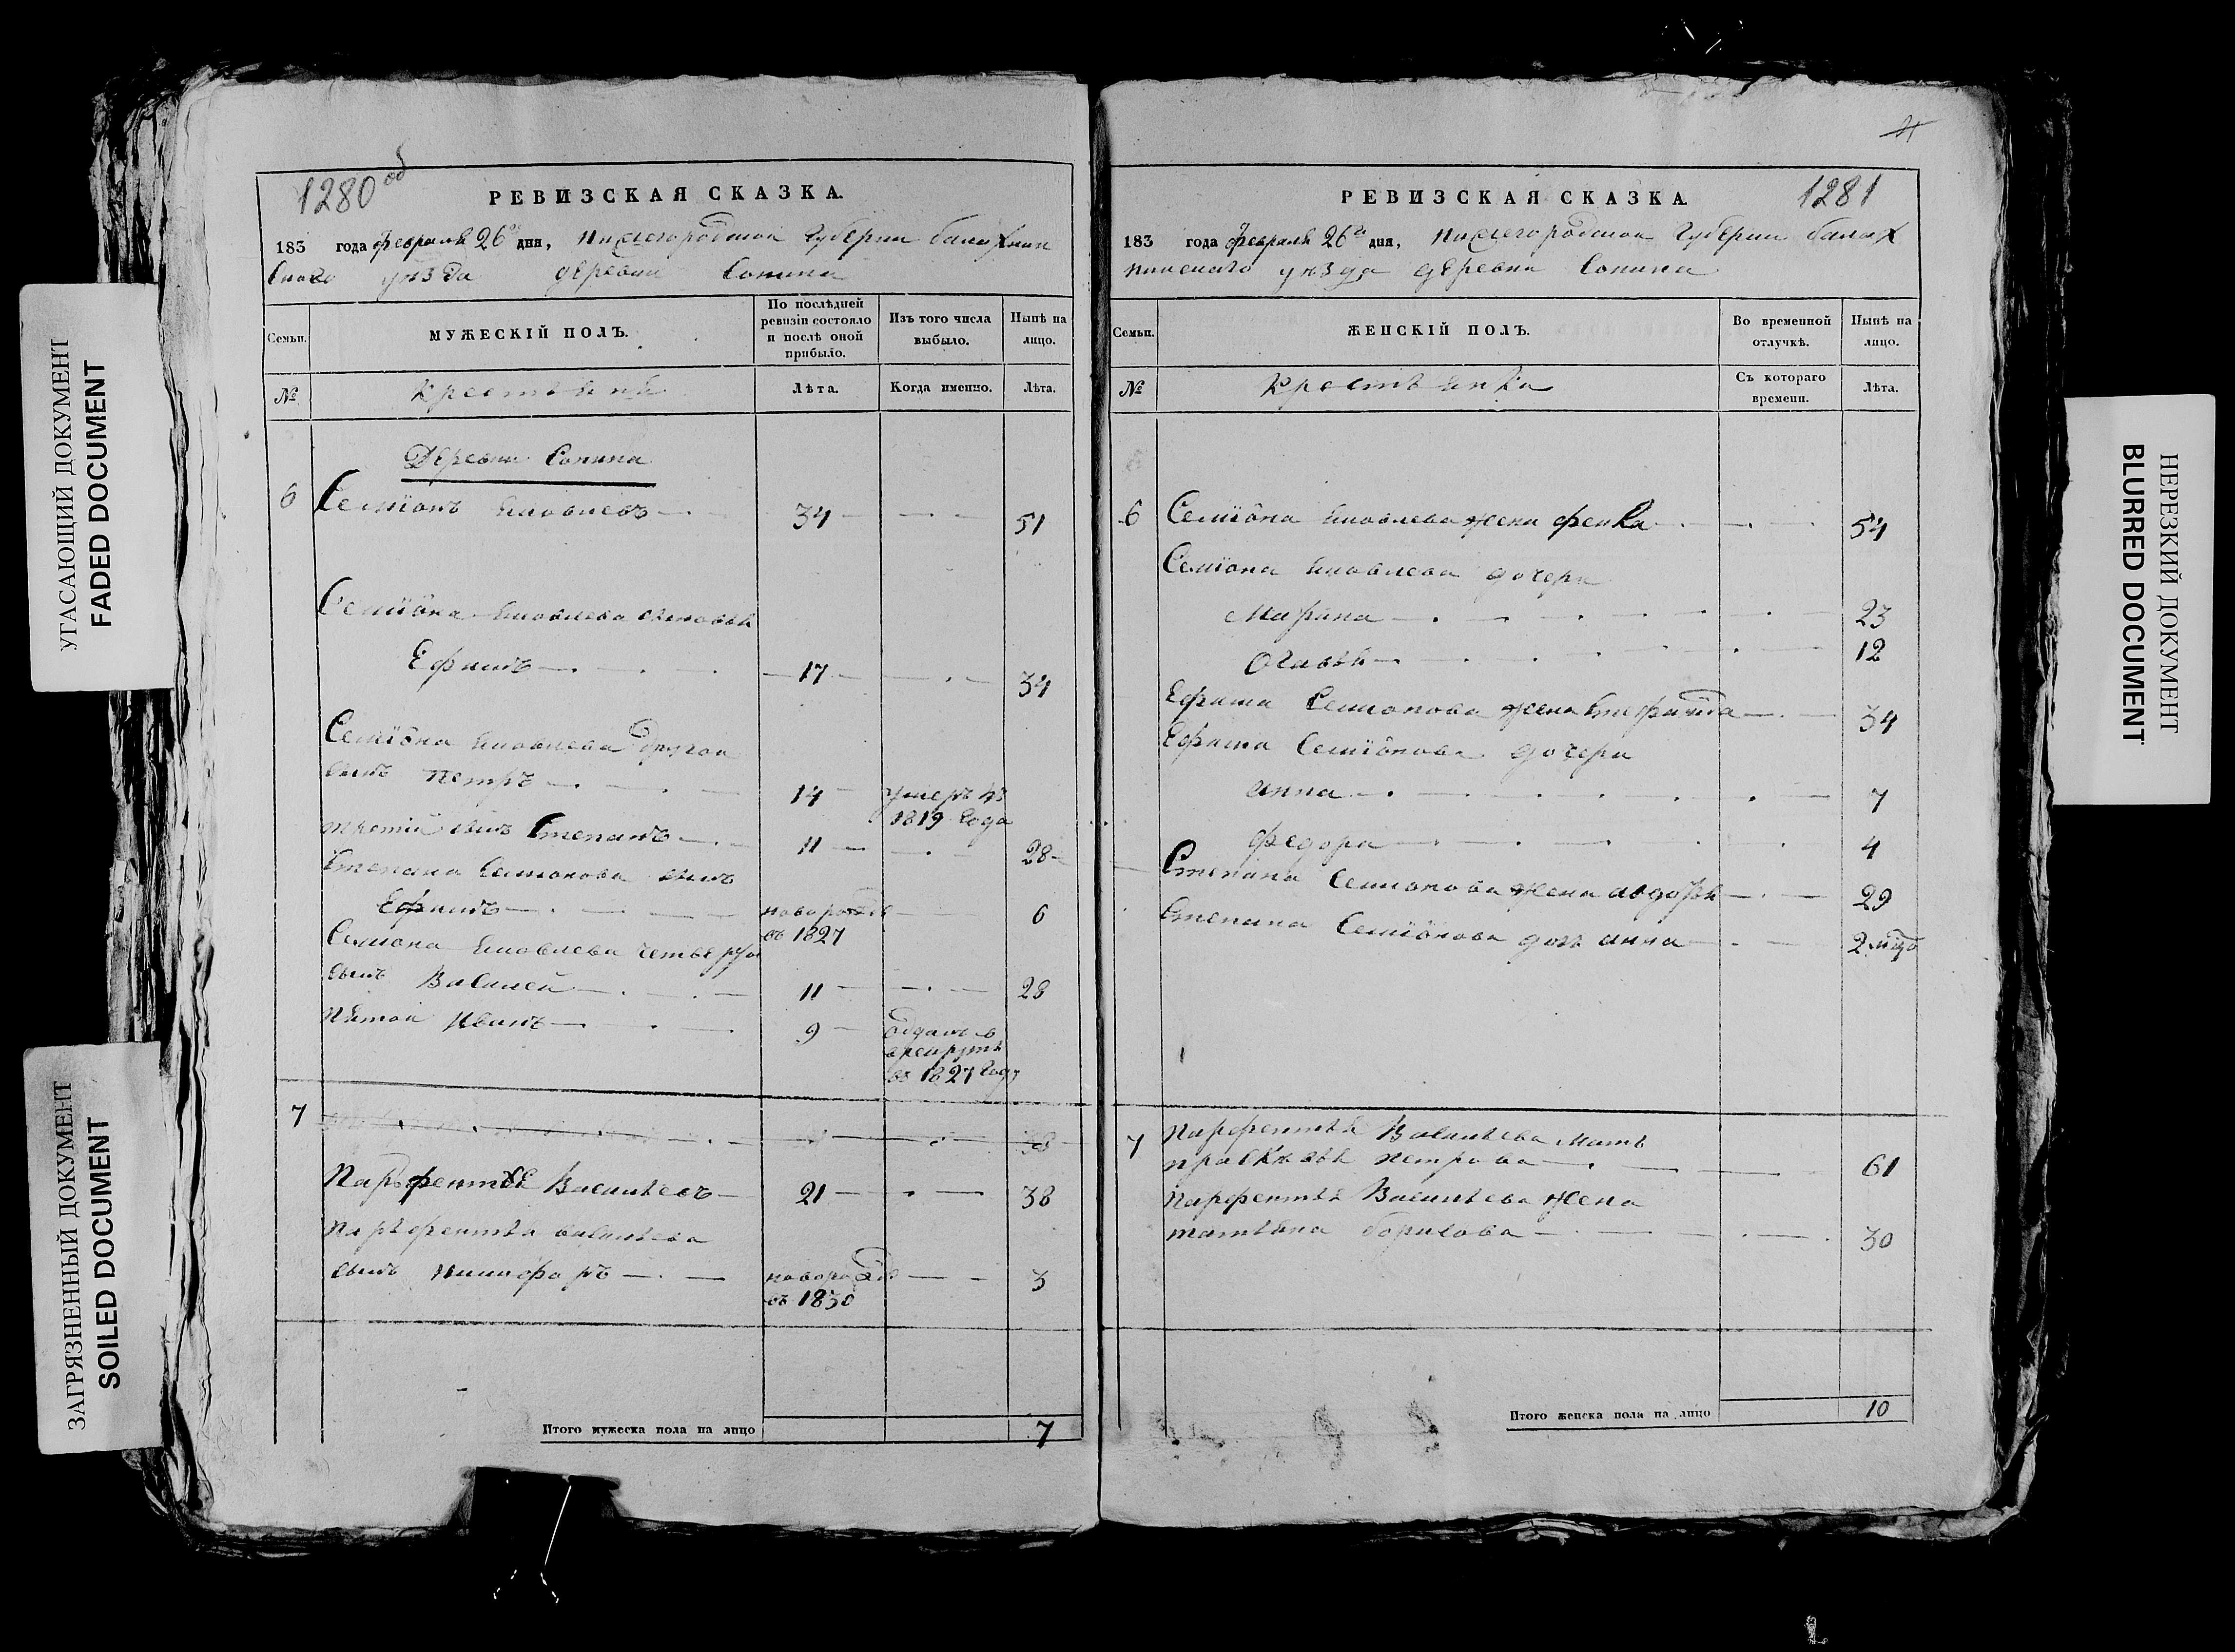 УГАСАЮЩИЙ ДОКУМЕНТ
FADED DOCUMENT
ЗАГРЯЗНЕННЫЙ ДОКУМЕНТ
SOILED DOCUMENT
1280 об
РЕВИЗСКАЯ СКАЗКА.
183 года февраля 26 дня, Нижегородской Губернии балахнин
скаго уезда деревни Сонина
Семьи. МУЖЕСКІЙ ПОЛЪ. По послѣдней ревизіи состояло и послѣ оной прибыло. Изъ того числа выбыло. Нынѣ на лицо.
№ крестьяне Лѣта. Когда именно. Лѣта.
Деревни Сонина
6 Семионъ Яковлевъ 34 51
Семиона Яковлева сыновья
Ефимъ 17 34
Семиона Яковлева другой
сынъ Петръ 14 умеръ въ 1819 года
третий сынъ Степанъ 11 28
Степана Семионова сынъ
Ефимъ новорожде въ 1827 6
Семиона Яковлева четвертой
сынъ Василей 11 28
пятой Иванъ 9 отданъ в рекруты въ 1827 году
7
Парфентей Васильевъ 21 38
Парфентья васильева
сынъ Никифоръ новорожде въ 1830 3
Итого мужеска пола на лицо 7
1281
РЕВИЗСКАЯ СКАЗКА.
183 года февраля 26 дня, Нижегородской Губернии балах
нинскаго уезда деревни Сонина
Семьи. ЖЕНСКІЙ ПОЛЪ. Во временной отлучкѣ. Нынѣ на лицо.
№ крестьянка Съ котораго времени. Лѣта.
6 Семиона Яковлева жена фекла 54
Семиона Яковлева дочери
Марина 23
12
Ефима Семионова жена 34
Ефима Семионова дочери
анна 7
федора 4
Степана Семионова жена авдотья 29
Степана Семионова дочь анна 2
7 Парфентья Васильева мать
прасковья петрова 61
Парфентья Васильева жена
татьяна борисова 30
Итого женска пола на лицо 10
НЕРЕЗКИЙ ДОКУМЕНТ
BLURRED DOCUMENT